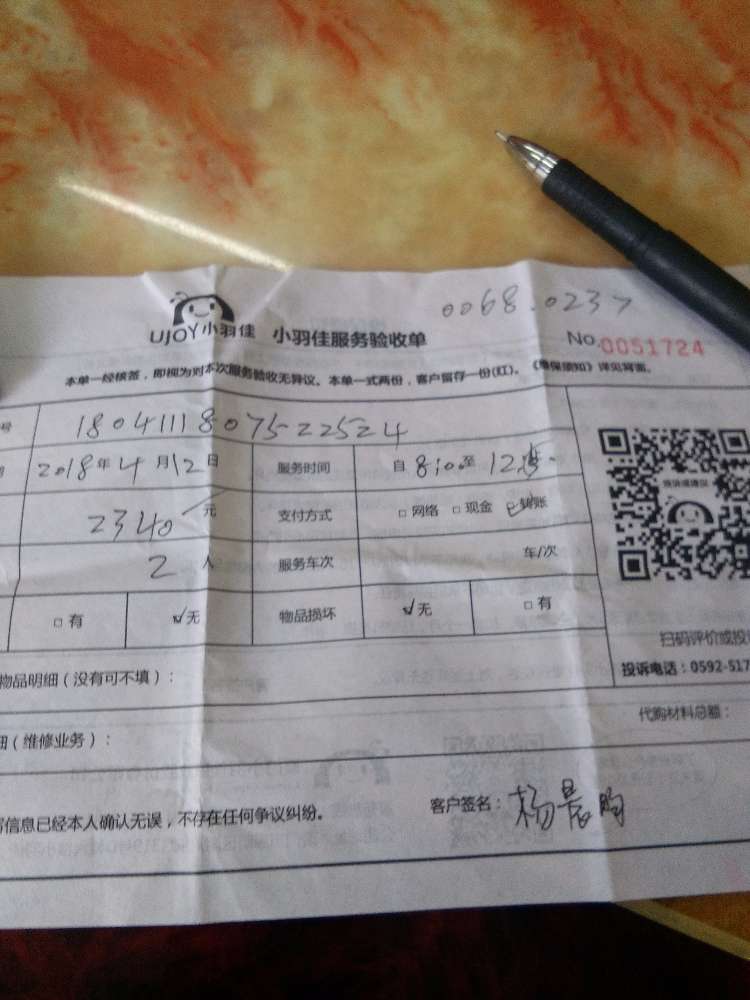 0068.0237
UJOY小羽佳 小羽佳服务验收单 No.0051724
本单一经核签，即视为对本次服务验收无异议。本单一式两份，客户留存一份(红)。《维保须知》详见背面。
号 1804111807522524
2018年4月12日 服务时间 自8:00至12
2340元 支付方式 □网络 □现金 ☑转账
2人 服务车次 车/次
□有 ☑无 物品损坏 ☑无 □有
扫码评价或投
物品明细（没有可不填）： 投诉电话：0592-517
代购材料总额：
细（维修业务）：
信息已经本人确认无误，不存在任何争议纠纷。 客户签名：杨晨